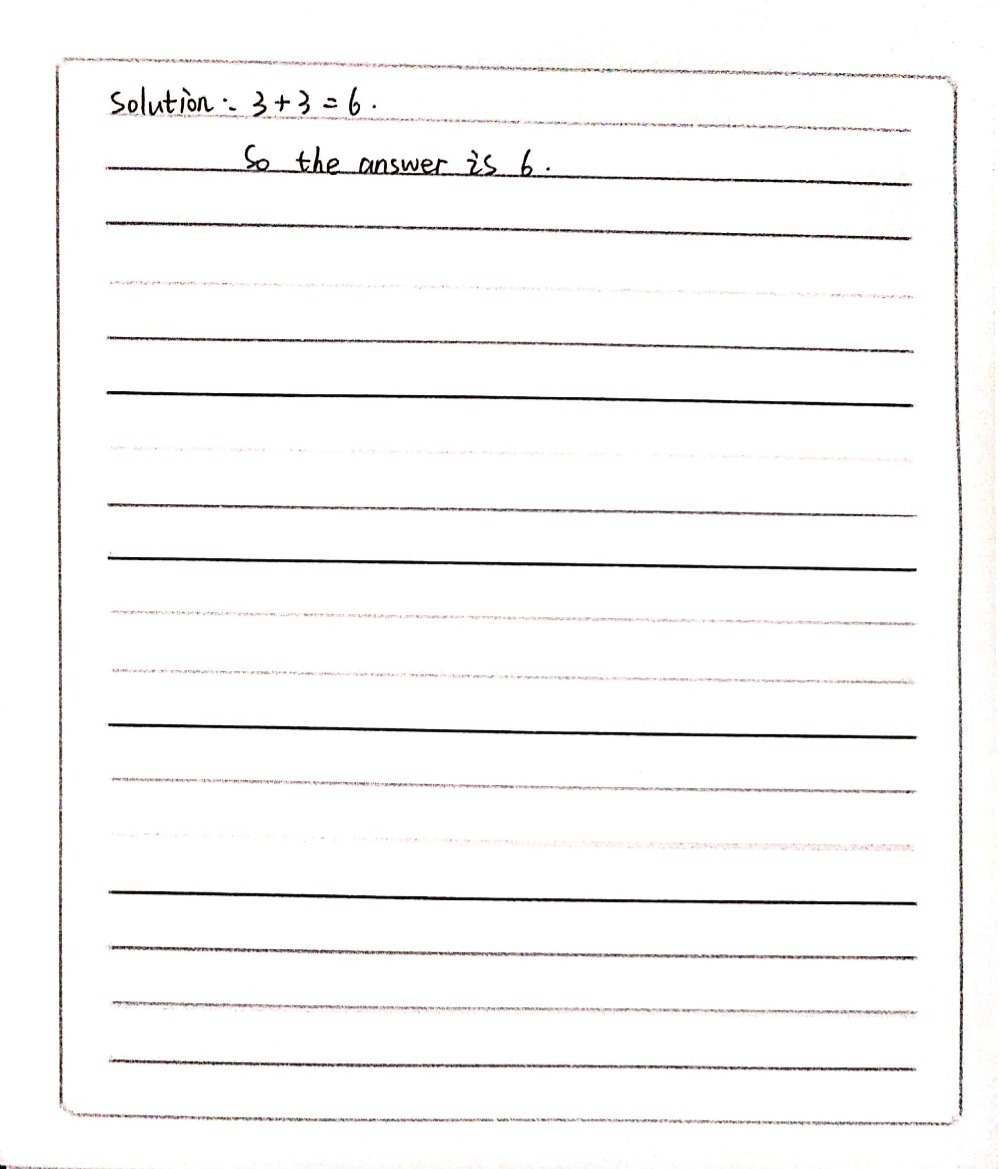 Solution:- 3+3=6.
So the answer is 6.